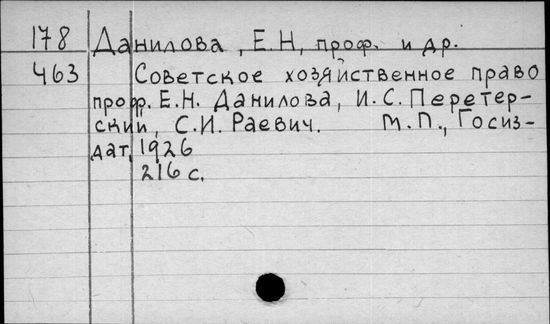 178 Данилова, Е.Н, проф. и др.
463 Советское хозяйственное право
проф. Е.Н. Данилова, И.С. Перетер-
ский, С.И. Раевич. М.П., Госиз-
дат, 1926
216 с.